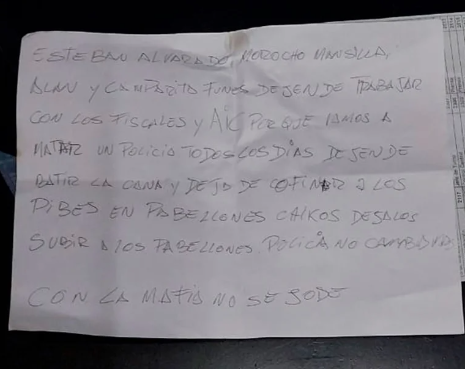 ESTEBAN ALVARADO, MOROCHO MANSILLA,
ALAN Y CAMPARITA FUNES DEJEN DE TRABAJAR
CON LOS FISCALES Y AIC PORQUE VAMOS A
MATAR UN POLICIA TODOS LOS DIAS DEJEN DE
BATIR LA CANA Y DEJA DE COFINAR A LOS
PIBES EN PABELLONES CHIKOS DEJALOS
SUBIR A LOS PABELLONES. POLICIA NO
CON LA MAFIA NO SE JODE